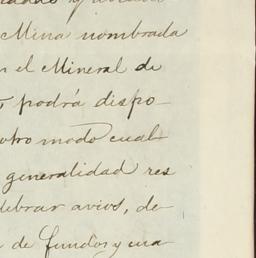 Mina nombrada
el Mineral de
podrá dispo-
otro modo cual-
generalidad res
lebrar avios, de
de fundos y cua